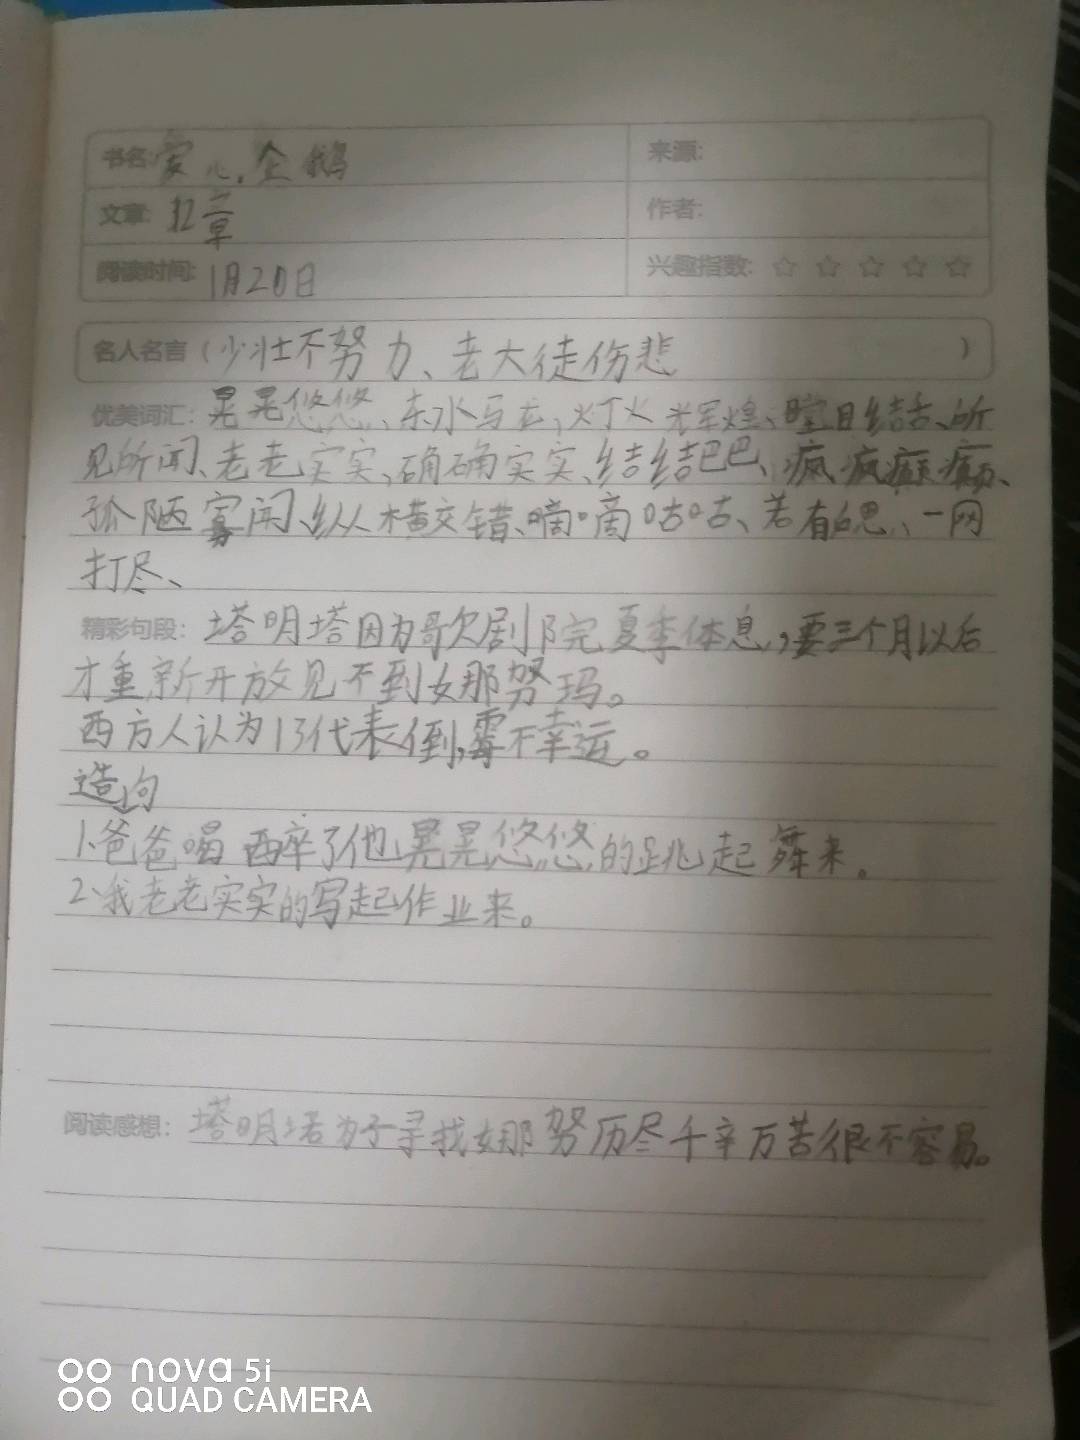 书名: 爱心企鹅
来源:
文章: 12章
作者:
阅读时间: 1月20日
兴趣指数: ☆ ☆ ☆ ☆ ☆
名人名言 (少壮不努力、老大徒伤悲 )
优美词汇: 晃晃悠悠、东水马龙、灯火光军煌、瞠目结舌、所
见所闻、老老实实、确确实实、结结巴巴、疯疯癫癫、
孤陋寡闻、纵横交错、嘀嘀咕咕、若有思、一网
打尽、
精彩句段: 塔明塔因为歌剧院夏季休息,要三个月以后
才重新开放见不到女那努玛。
西方人认为13代表倒,霉不幸运。
造句
1.爸爸喝醉了他晃晃悠悠的跳起舞来。
2、我老老实实的写起作业来。
阅读感想: 塔明塔为了寻找女那努历尽千辛万苦很不容易。
nova 5i
QUAD CAMERA